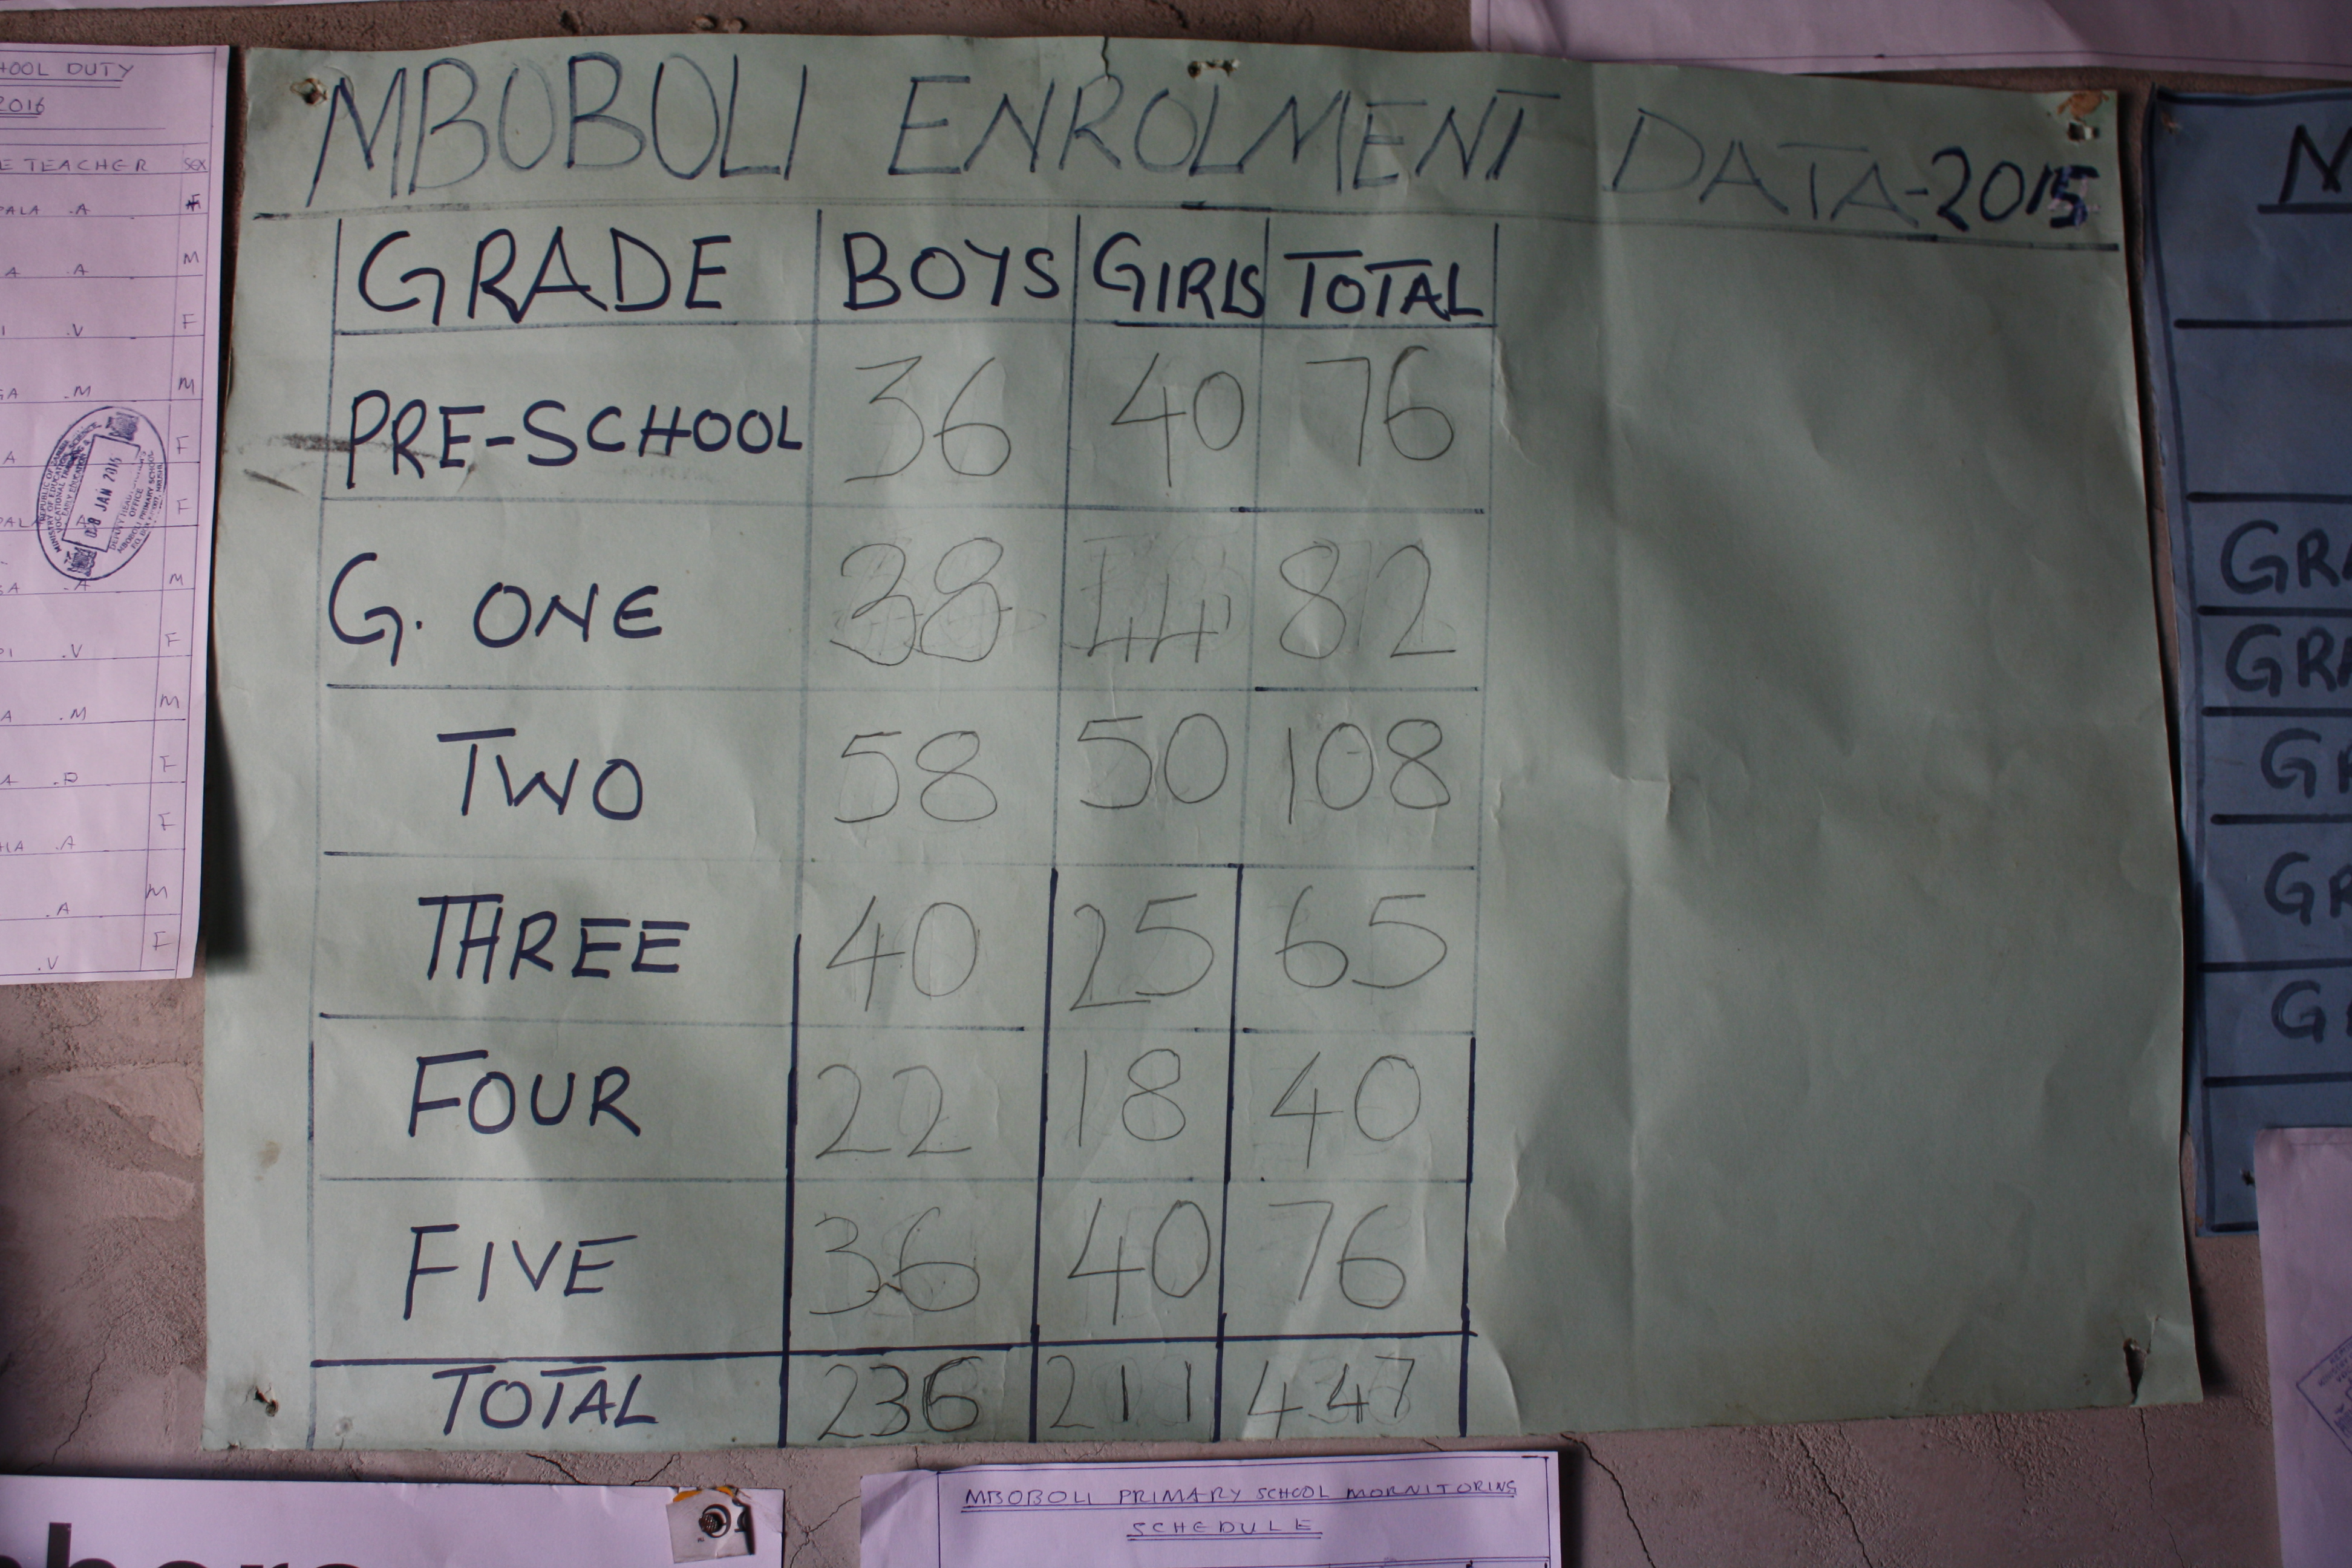 MBOBOLI ENROLMENT DATA-2015
GRADE BOYS GIRLS TOTAL
PRE-SCHOOL 36 40 76
G. ONE 38 44 82
TWO 58 50 108
THREE 40 25 65
FOUR 22 18 40
FIVE 36 40 76
TOTAL 236 211 447
HOOL DUTY
2016
E TEACHER SEX
PALA .A F
A .A M
I .V F
GA .M M
A F
PALA A F
SA .A M
DI .V F
A .M M
A .P F
HIA .A F
.A M
.V F
REPUBLIC OF ZAMBIA
08 JAN 2016
OFFICE
MBOBOLI PRIMARY SCHOOL
N
GRA
GRA
GR
GR
G
MBOBOLI PRIMARY SCHOOL MORNITORING
SCHEDULE